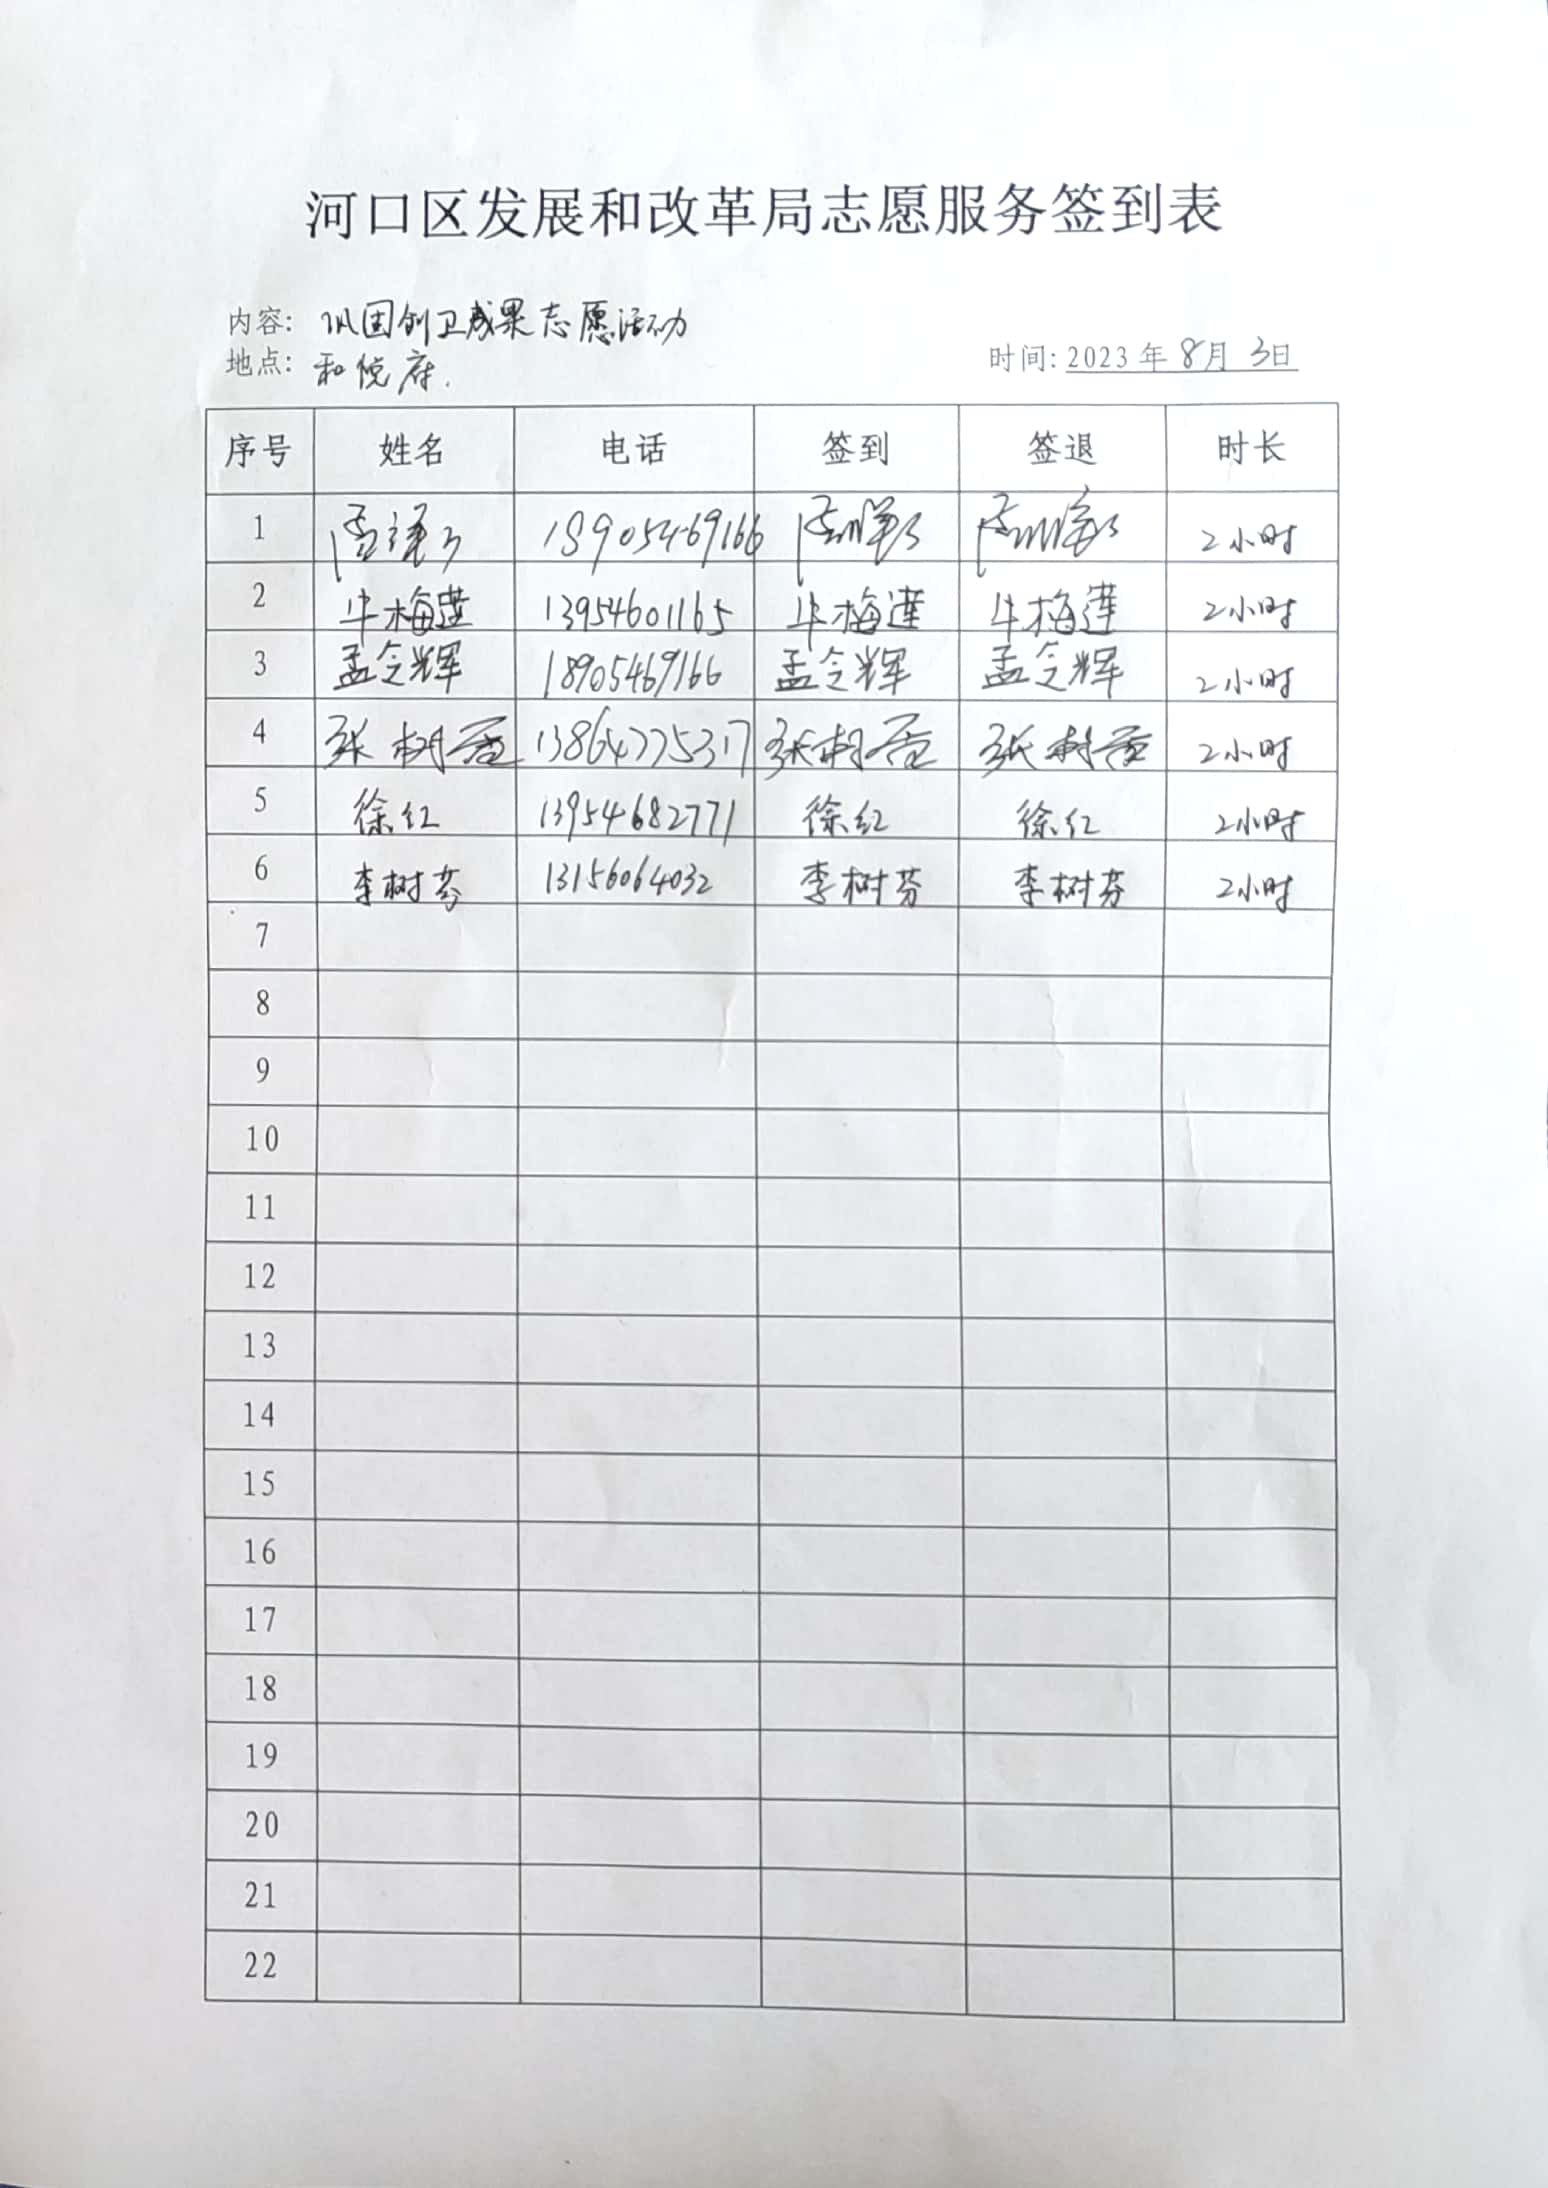 河口区发展和改革局志愿服务签到表
内容: 巩固创卫成果志愿活动
地点: 和悦府.
时间: 2023年8月3日
序号 姓名 电话 签到 签退 时长
1 18905469166 2小时
2 牛梅莲 13954601165 牛梅莲 牛梅莲 2小时
3 孟令辉 18905469166 孟令辉 孟令辉 2小时
4 张树 13864775317 张树 张树 2小时
5 徐红 13954682771 徐红 徐红 2小时
6 李树芬 13156064032 李树芬 李树芬 2小时
7
8
9
10
11
12
13
14
15
16
17
18
19
20
21
22